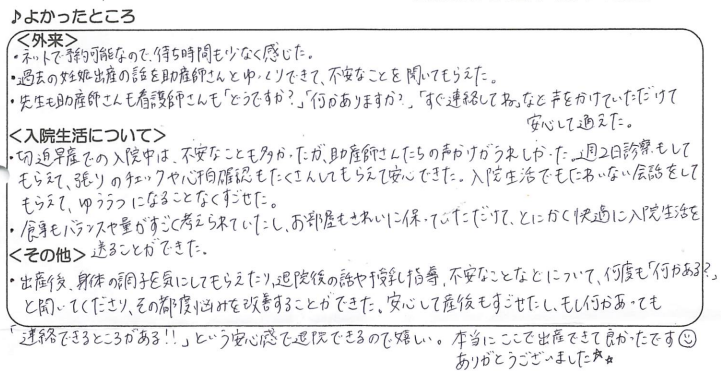 ♪よかったところ
＜外来＞
・ネットで予約可能なので、待ち時間も少なく感じた。
・過去の妊娠出産の話を助産師さんとゆっくりできて、不安なことを聞いてもらえた。
・先生も助産師さんも看護師さんも「どうですか？」「何かありますか？」「すぐ連絡してね」など声をかけていただけて
安心して通えた。
＜入院生活について＞
・切迫早産での入院中は、不安なことも多かったが、助産師さんたちの声かけがうれしかった。週2日診察もして
もらえて、張りのチェックや心拍確認もたくさんしてもらえて安心できた。入院生活でもたわいない会話をして
もらえて、ゆううつになることなくすごせた。
・食事もバランスや量がすごく考えられていたし、お部屋もきれいに保っていただけて、とにかく快適に入院生活を
送ることができた。
＜その他＞
・出産後、身体の調子を気にしてもらえたり、退院後の話や授乳指導、不安なことなどについて、何度も「何かある？」
と聞いてくださり、その都度悩みを改善することができた。安心して産後もすごせたし、もし何かあっても
「連絡できるところがある！！」という安心感で退院できるので嬉しい。本当にここで出産できて良かったです☺
ありがとうございました☆★